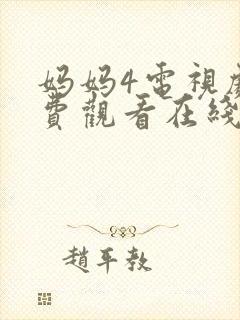 妈妈4電視劇
費觀看在綫
趙平教